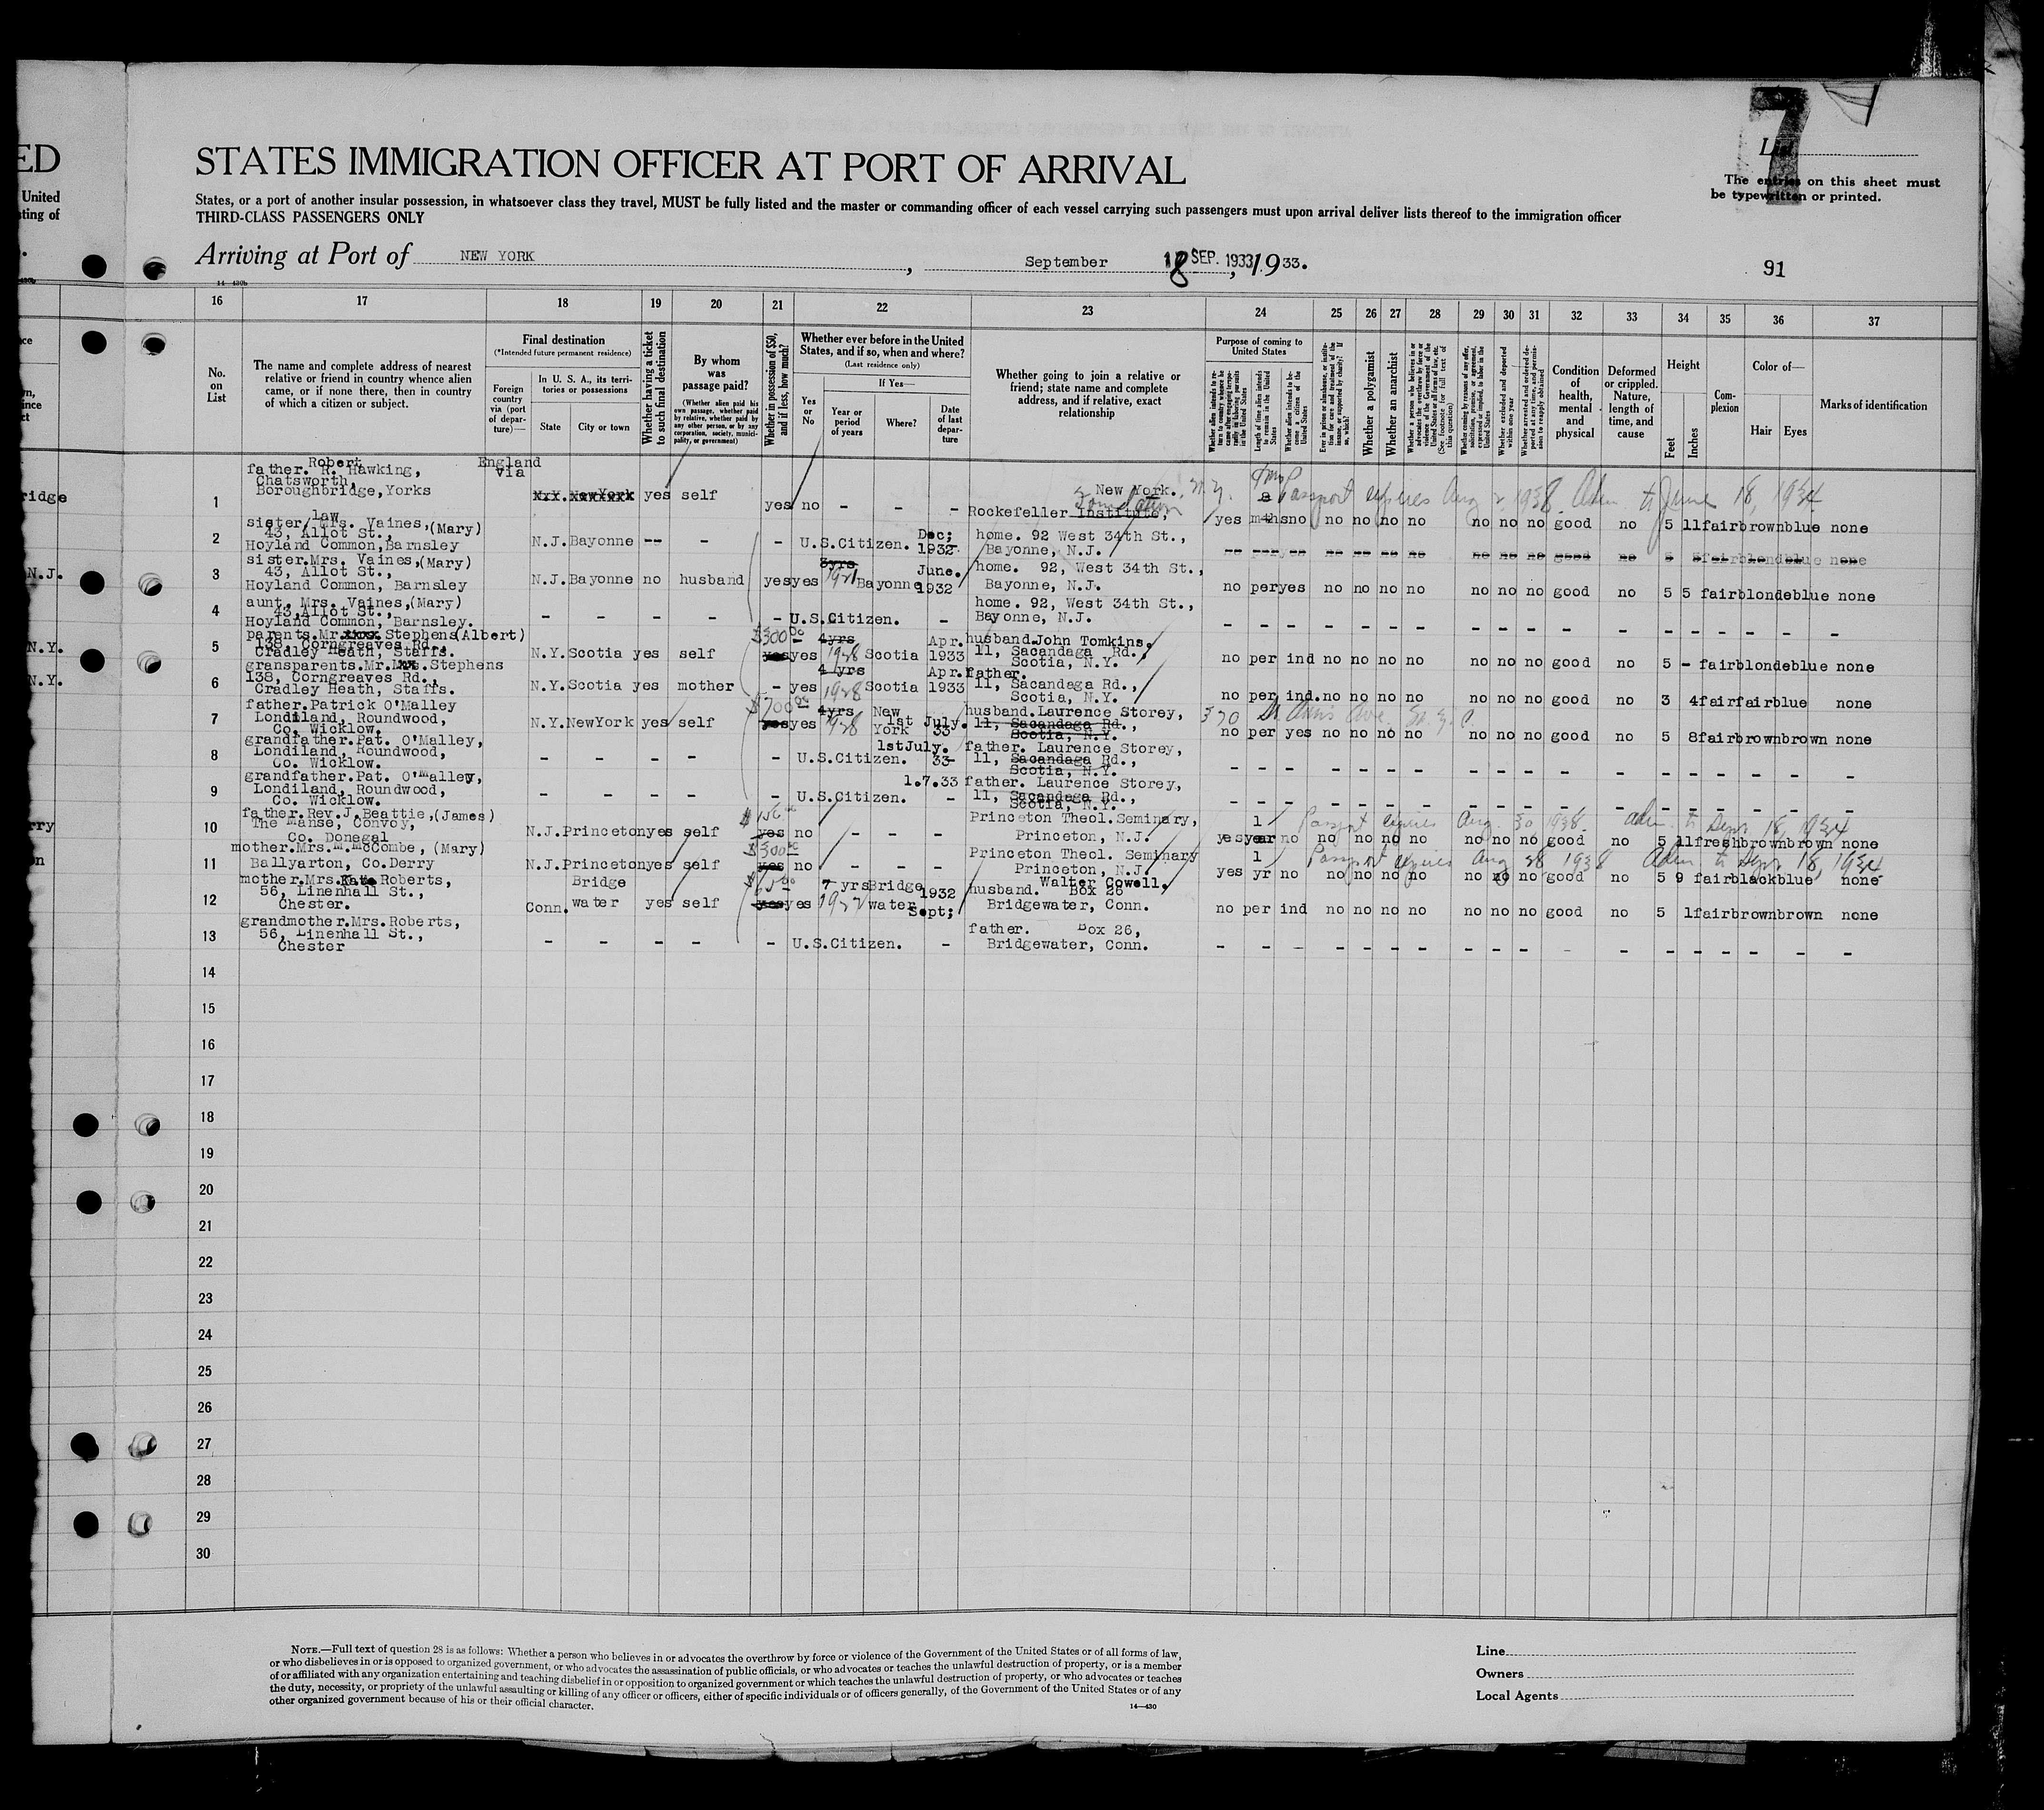 ED
United
sting of
STATES IMMIGRATION OFFICER AT PORT OF ARRIVAL
States, or a port of another insular possession, in whatsoever class they travel, MUST be fully listed and the master or commanding officer of each vessel carrying such passengers must upon arrival deliver lists thereof to the immigration officer
THIRD-CLASS PASSENGERS ONLY
7
List
The entries on this sheet must
be typewritten or printed.
Arriving at Port of NEW YORK, September 18 SEP. 1933, 1933.
91
16 17 18 19 20 21 22 23 24 25 26 27 28 29 30 31 32 33 34 35 36 37
No. on List
The name and complete address of nearest relative or friend in country whence alien came, or if none there, then in country of which a citizen or subject.
Final destination
(*Intended future permanent residence)
Foreign country via (port of departure)—
In U. S. A., its territories or possessions
State City or town
Whether having a ticket to such final destination
By whom was passage paid?
(Whether alien paid his own passage, whether paid by relative, whether paid by any other person, or by any corporation, society, municipality, or government)
Whether in possession of $50, and if less, how much?
Whether ever before in the United States, and if so, when and where?
(Last residence only)
Yes or No
If Yes—
Year or period of years
Where?
Date of last departure
Whether going to join a relative or friend; state name and complete address, and if relative, exact relationship
Purpose of coming to United States
Length of time alien intends to remain in the United States
Whether alien intends to become a citizen of the United States
Whether a polygamist
Whether an anarchist
Condition of health, mental and physical
Deformed or crippled. Nature, length of time, and cause
Height
Feet Inches
Complexion
Color of—
Hair Eyes
Marks of identification
1 father. Robert R. Hawking, Chatsworth, Boroughbridge, Yorks England via N.Y. NewYork yes self yes no - - - New York. N.Y. Rockefeller Institute, Foundation yes mths no no no no no no no no good no 5 11 fair brown blue none
Passport expires Aug 2 1938. Adm. to June 18, 1934
2 sister/law Mrs. Vaines, (Mary) 43, Allot St., Hoyland Common, Barnsley N.J. Bayonne -- - - U.S.Citizen. Dec; 1932 home. 92 West 34th St., Bayonne, N.J. -- per yes -- -- -- no no no no good no 5 5 fair blonde blue none
3 sister. Mrs. Vaines, (Mary) 43, Allot St., Hoyland Common, Barnsley N.J. Bayonne no husband yes yes 3yrs 1921 Bayonne June. 1932 home. 92, West 34th St., Bayonne, N.J. no per yes no no no no no no no good no 5 5 fair blonde blue none
4 aunt. Mrs. Vaines, (Mary) 43, Allot St., Hoyland Common, Barnsley. - - - - - U.S.Citizen. - home. 92, West 34th St., Bayonne, N.J. - - - - - - - - - - - - - - - - - -
5 parents. Mr. xxxx Stephens (Albert) 138, Corngreaves Rd., Cradley Heath, Staffs. N.Y. Scotia yes self $300 00 yes yes 4yrs 1928 Scotia Apr. 1933 husband. John Tomkins, 11, Sacandaga Rd., Scotia, N.Y. no per ind no no no no no no no good no 5 - fair blonde blue none
6 gransparents. Mr. Mrs. Stephens 138, Corngreaves Rd., Cradley Heath, Staffs. N.Y. Scotia yes mother - yes 4 yrs 1928 Scotia Apr. 1933 father. 11, Sacandaga Rd., Scotia, N.Y. no per ind. no no no no no no no good no 3 4 fair fair blue none
7 father. Patrick O'Malley Londiland, Roundwood, Co. Wicklow. N.Y. NewYork yes self $700 00 yes yes 4yrs 1928 New York 1st July. 33 husband. Laurence Storey, 11, Sacandaga Rd., Scotia, N.Y. 370 St. Anns Ave. no per yes no no no no no no no good no 5 8 fair brown brown none
8 grandfather. Pat. O'Malley, Londiland, Roundwood, Co. Wicklow. - - - - - U.S.Citizen. 1stJuly. 33 father. Laurence Storey, 11, Sacandaga Rd., Scotia, N.Y. - - - - - - - - - - - - - - - - - -
9 grandfather. Pat. O'Malley, Londiland, Roundwood, Co. Wicklow. - - - - - U.S.Citizen. 1.7.33 - father. Laurence Storey, 11, Sacandaga Rd., Scotia, N.Y. - - - - - - - - - - - - - - - - - -
10 father. Rev. J. Beattie, (James) The Manse, Convoy, Co. Donegal N.J. Princeton yes self yes no - - - Princeton Theol. Seminary, Princeton, N.J. yes 1 year no no no no no no no no good no 5 11 fresh brown brown none
Passport expires Aug. 30, 1938. adm. to Sept. 18, 1934
11 mother. Mrs. M. McCombe, (Mary) Ballyarton, Co. Derry N.J. Princeton yes self $300 00 yes no - - - Princeton Theol. Seminary Princeton, N.J. yes 1 yr no no no no no no no no good no 5 9 fair black blue none
Passport expires Aug 28 1938 Adm. to Sept 18, 1934
12 mother. Mrs. Kate Roberts, 56, Linenhall St., Chester. Conn. Bridgewater yes self yes yes 7 yrs Bridgewater 1932 Sept; husband. Walter Cowell, Box 26 Bridgewater, Conn. no per ind no no no no no no no good no 5 1 fair brown brown none
13 grandmother. Mrs. Roberts, 56, Linenhall St., Chester - - - - - U.S.Citizen. - father. Box 26, Bridgewater, Conn. - - - - - - - - - - - - - - - - - -
14
15
16
17
18
19
20
21
22
23
24
25
26
27
28
29
30
NOTE.—Full text of question 28 is as follows: Whether a person who believes in or advocates the overthrow by force or violence of the Government of the United States or of all forms of law,
or who disbelieves in or is opposed to organized government, or who advocates the assassination of public officials, or who advocates or teaches the unlawful destruction of property, or is a member
of or affiliated with any organization entertaining and teaching disbelief in or opposition to organized government or which teaches the unlawful destruction of property, or who advocates or teaches
the duty, necessity, or propriety of the unlawful assaulting or killing of any officer or officers, either of specific individuals or of officers generally, of the Government of the United States or of any
other organized government because of his or their official character.
14—430
Line
Owners
Local Agents